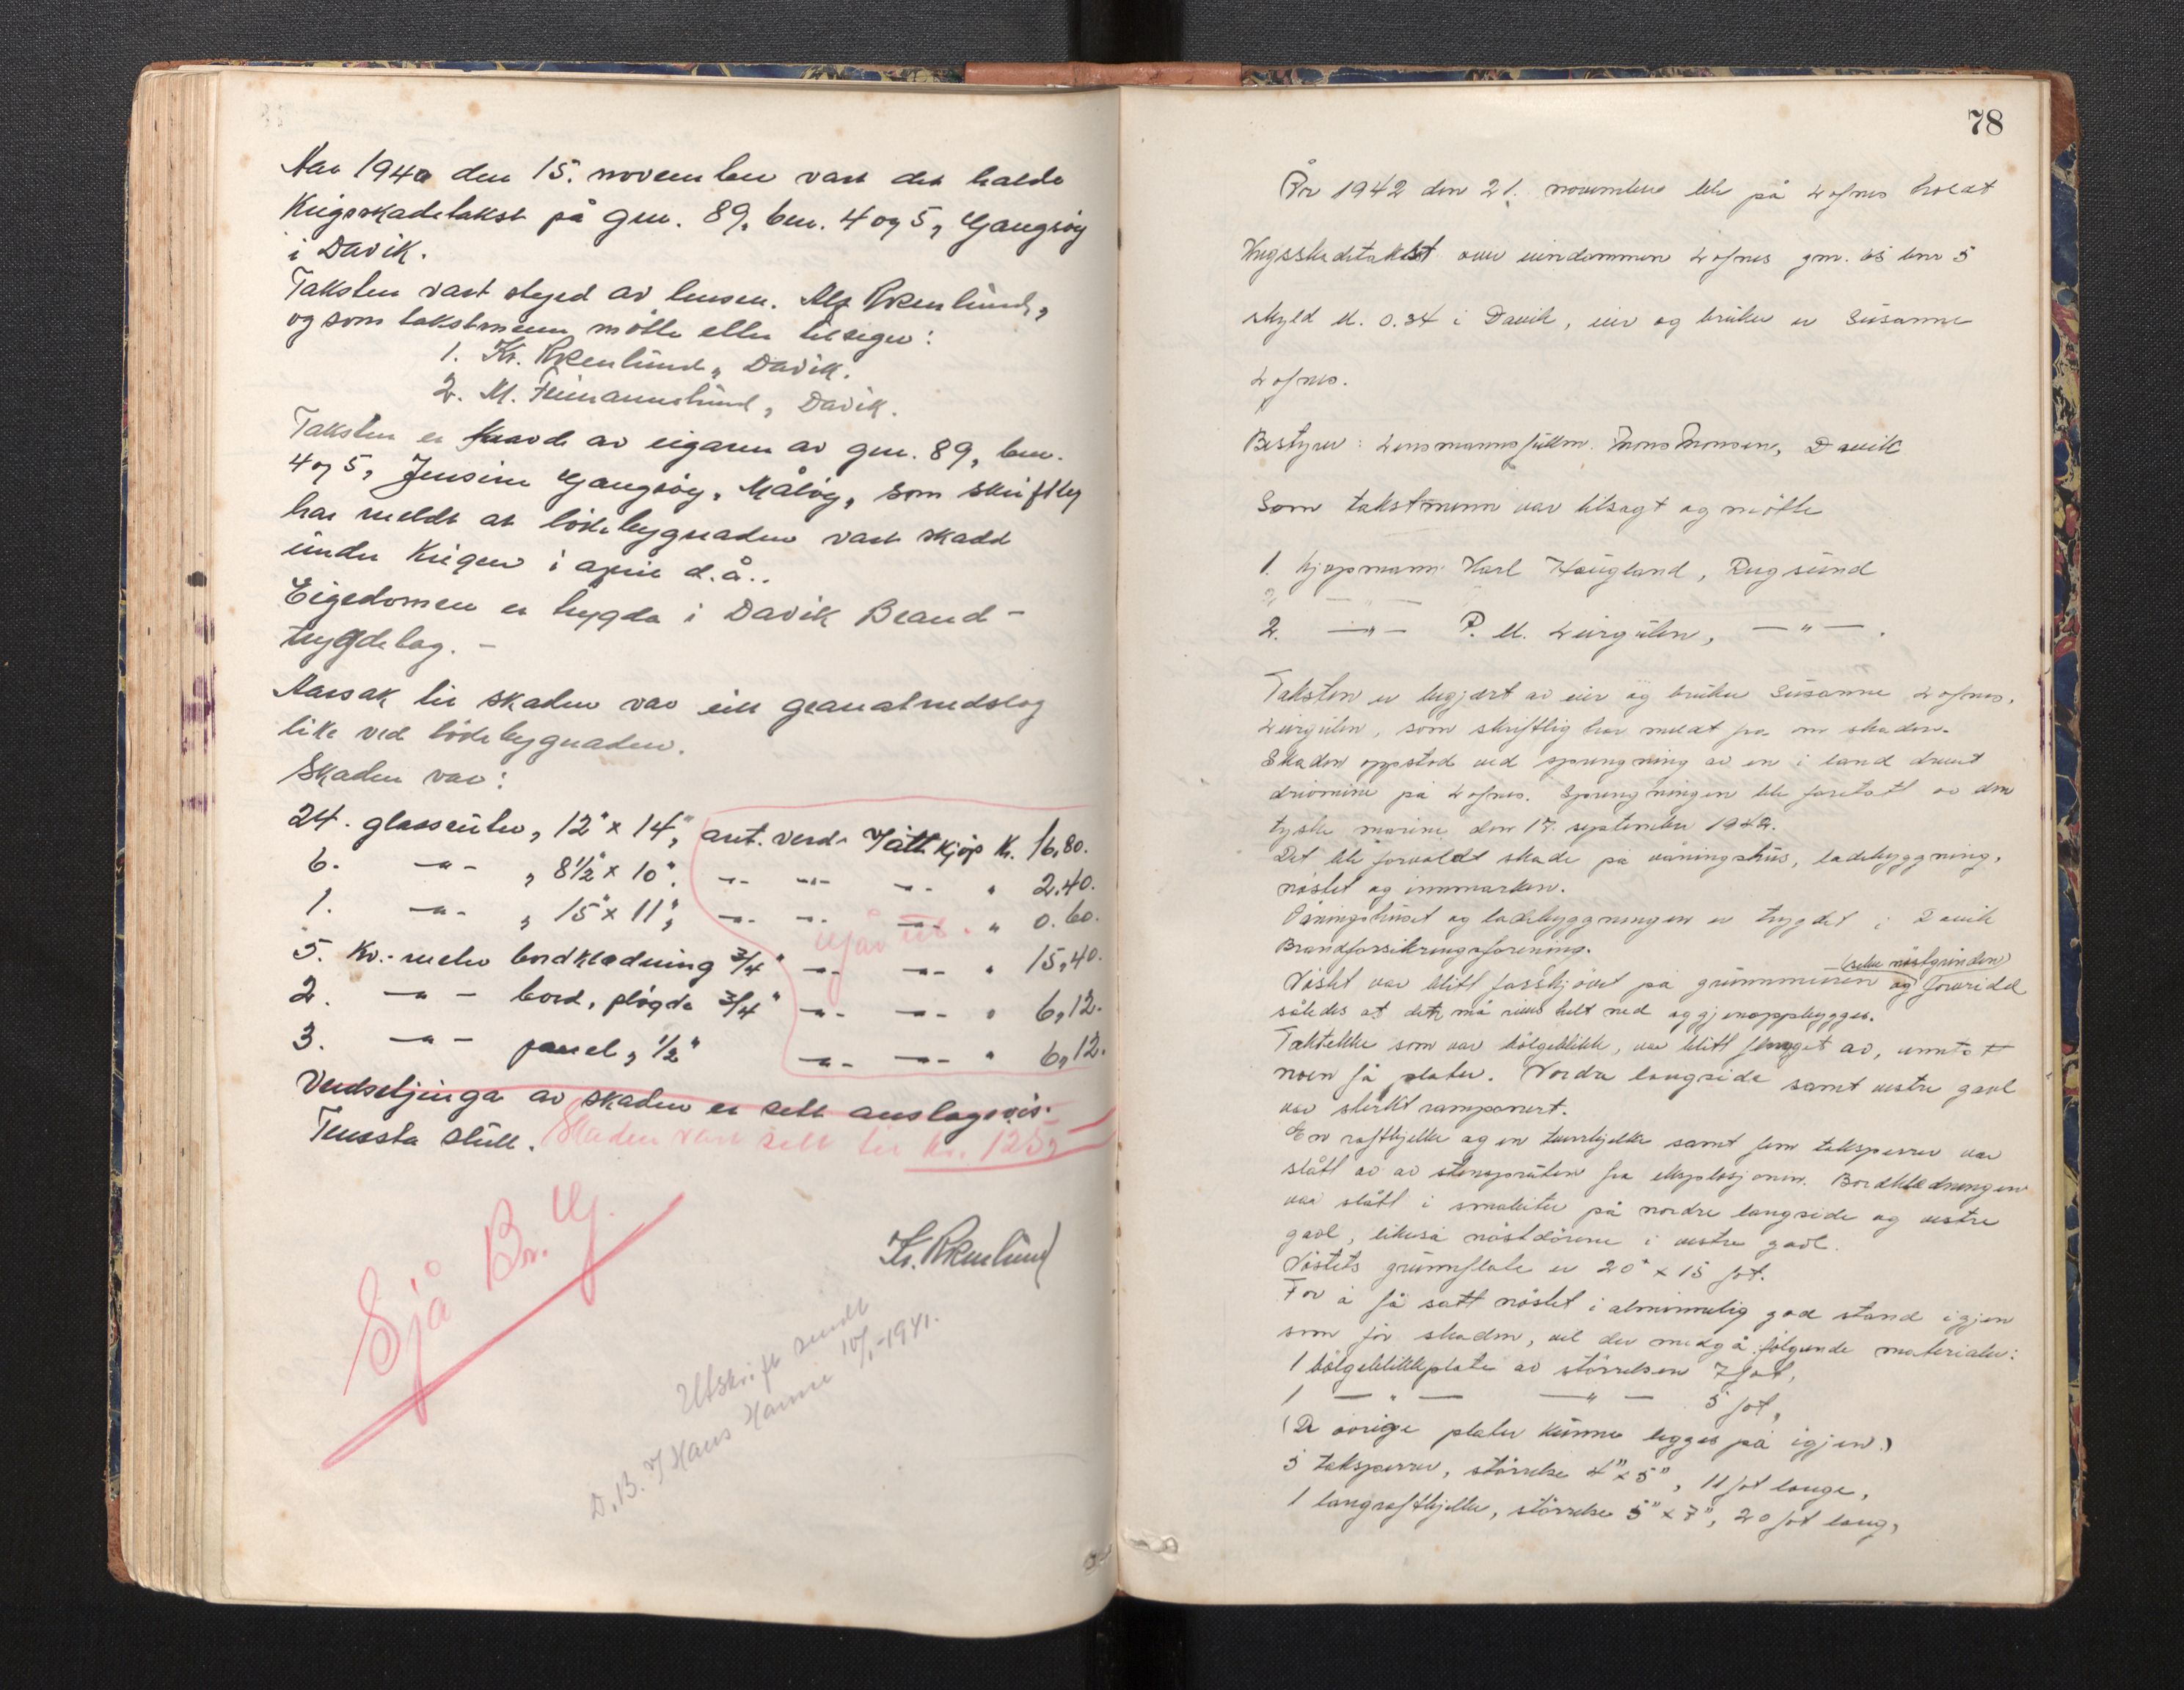 Aar 1940 den 15. november vart det halde
Krigsskadetakst på gnr. 89, bnr. 4 og 5, Gangsöy
i Davik.
Taksten vart styrd av lensm.
og som takstmenn mötte etter tilsegn:
1. Kr. Davik.
2. M. Davik.
Taksten er kravd av eigaren av gnr. 89, bnr.
4 og 5, Jensine Gangsöy, Måløy, som skriftleg
har meldt at lödebygnaden vart skadd
under Krigen i april d.å..
Eigedomen er trygda i Davik Brand-
trygdelag. -
Aarsak til skaden var eitt granatnedslag
like ved lödebygnaden.
Skaden var:
24. glasruter, 12" x 14", ant. verd. kjöp Kr. 16,80.
6. -"- , 8½" x 10". -"- -"- -"- " 2.40.
1. -"- , 15" x 11", -"- -"- -"- " 0.60.
5. Kv.-meter bordkledning 3/4" -"- -"- " 15,40.
2. -"- bord, plögde 3/4" -"- -"- " 6,12.
3. -"- panel, 1/2" -"- -"- " 6,12.
Går ut.
Verdsetjinga av skaden er sett anslagsvis.
Skaden vart sett til Kr. 125,
Sjå Br. G.
Kr.
Utskrift sendt
D.B. Hans 10/1-1941.
78
År 1942 den 21. november ble på Lofnes holdt
Krigsskadetakst over eiendommen Lofnes gnr. bnr 5
skyld M. 0.34 i Davik, eier og bruker er Susanne
Lofnes.
Bestyrer: Lensmannsfullm. Mons Monsen, Davik
Som takstmenn var tilsagt og mötte
1. kjöpmann Karl Haugland, Rugsund
2. -"- P. M. Leirgulen, -"- .
Taksten er begjært av eier og bruker Susanne Lofnes,
Leirgulen, som skriftlig har meldt fra om skaden.
Skaden oppstod ved sprengning av en i land drevet
drivmine på Lofnes. Sprengningen ble foretatt av den
tyske marine den 17. september 1942.
Det ble forvoldt skade på våningshus, ladebyggning,
nöstet og innmarken.
Våningshuset og ladebyggningen er trygdet i Davik
Brandforsikringsforening.
(selve nöstgrunden)
Nöstet var blitt forskjövet på grunnmuren og forvridd
således at det må rives helt ned og gjenoppbygges.
Taktekke som var bölgeblikk, var blitt slynget av, unntatt
noen få plater. Nordre langside samt vestre gavl
var sterkt ramponert.
En raftbjelke og en tverrbjelke samt fem taksperrer var
slått av av stensprøten fra eksplosjonen. Bordkledningen
var slått i småbiter på nordre langside og vestre
gavl, likeså nöstdörene i vestre gavl.
Nöstets grunnflate er 20" x 15 fot.
For å få satt nöstet i alminnelig god stand igjen
som för skaden, vil der medgå fölgende materialer:
1 bölgeblikkplate av störrelsen 7 fot,
1 -"- -"- 5 fot,
(De övrige plater kunne legges på igjen.)
5 taksperrer, störrelse 4" x 5", 11 fot lange,
1 langraftbjelke, störrelse 5" x 7", 20 fot lang,